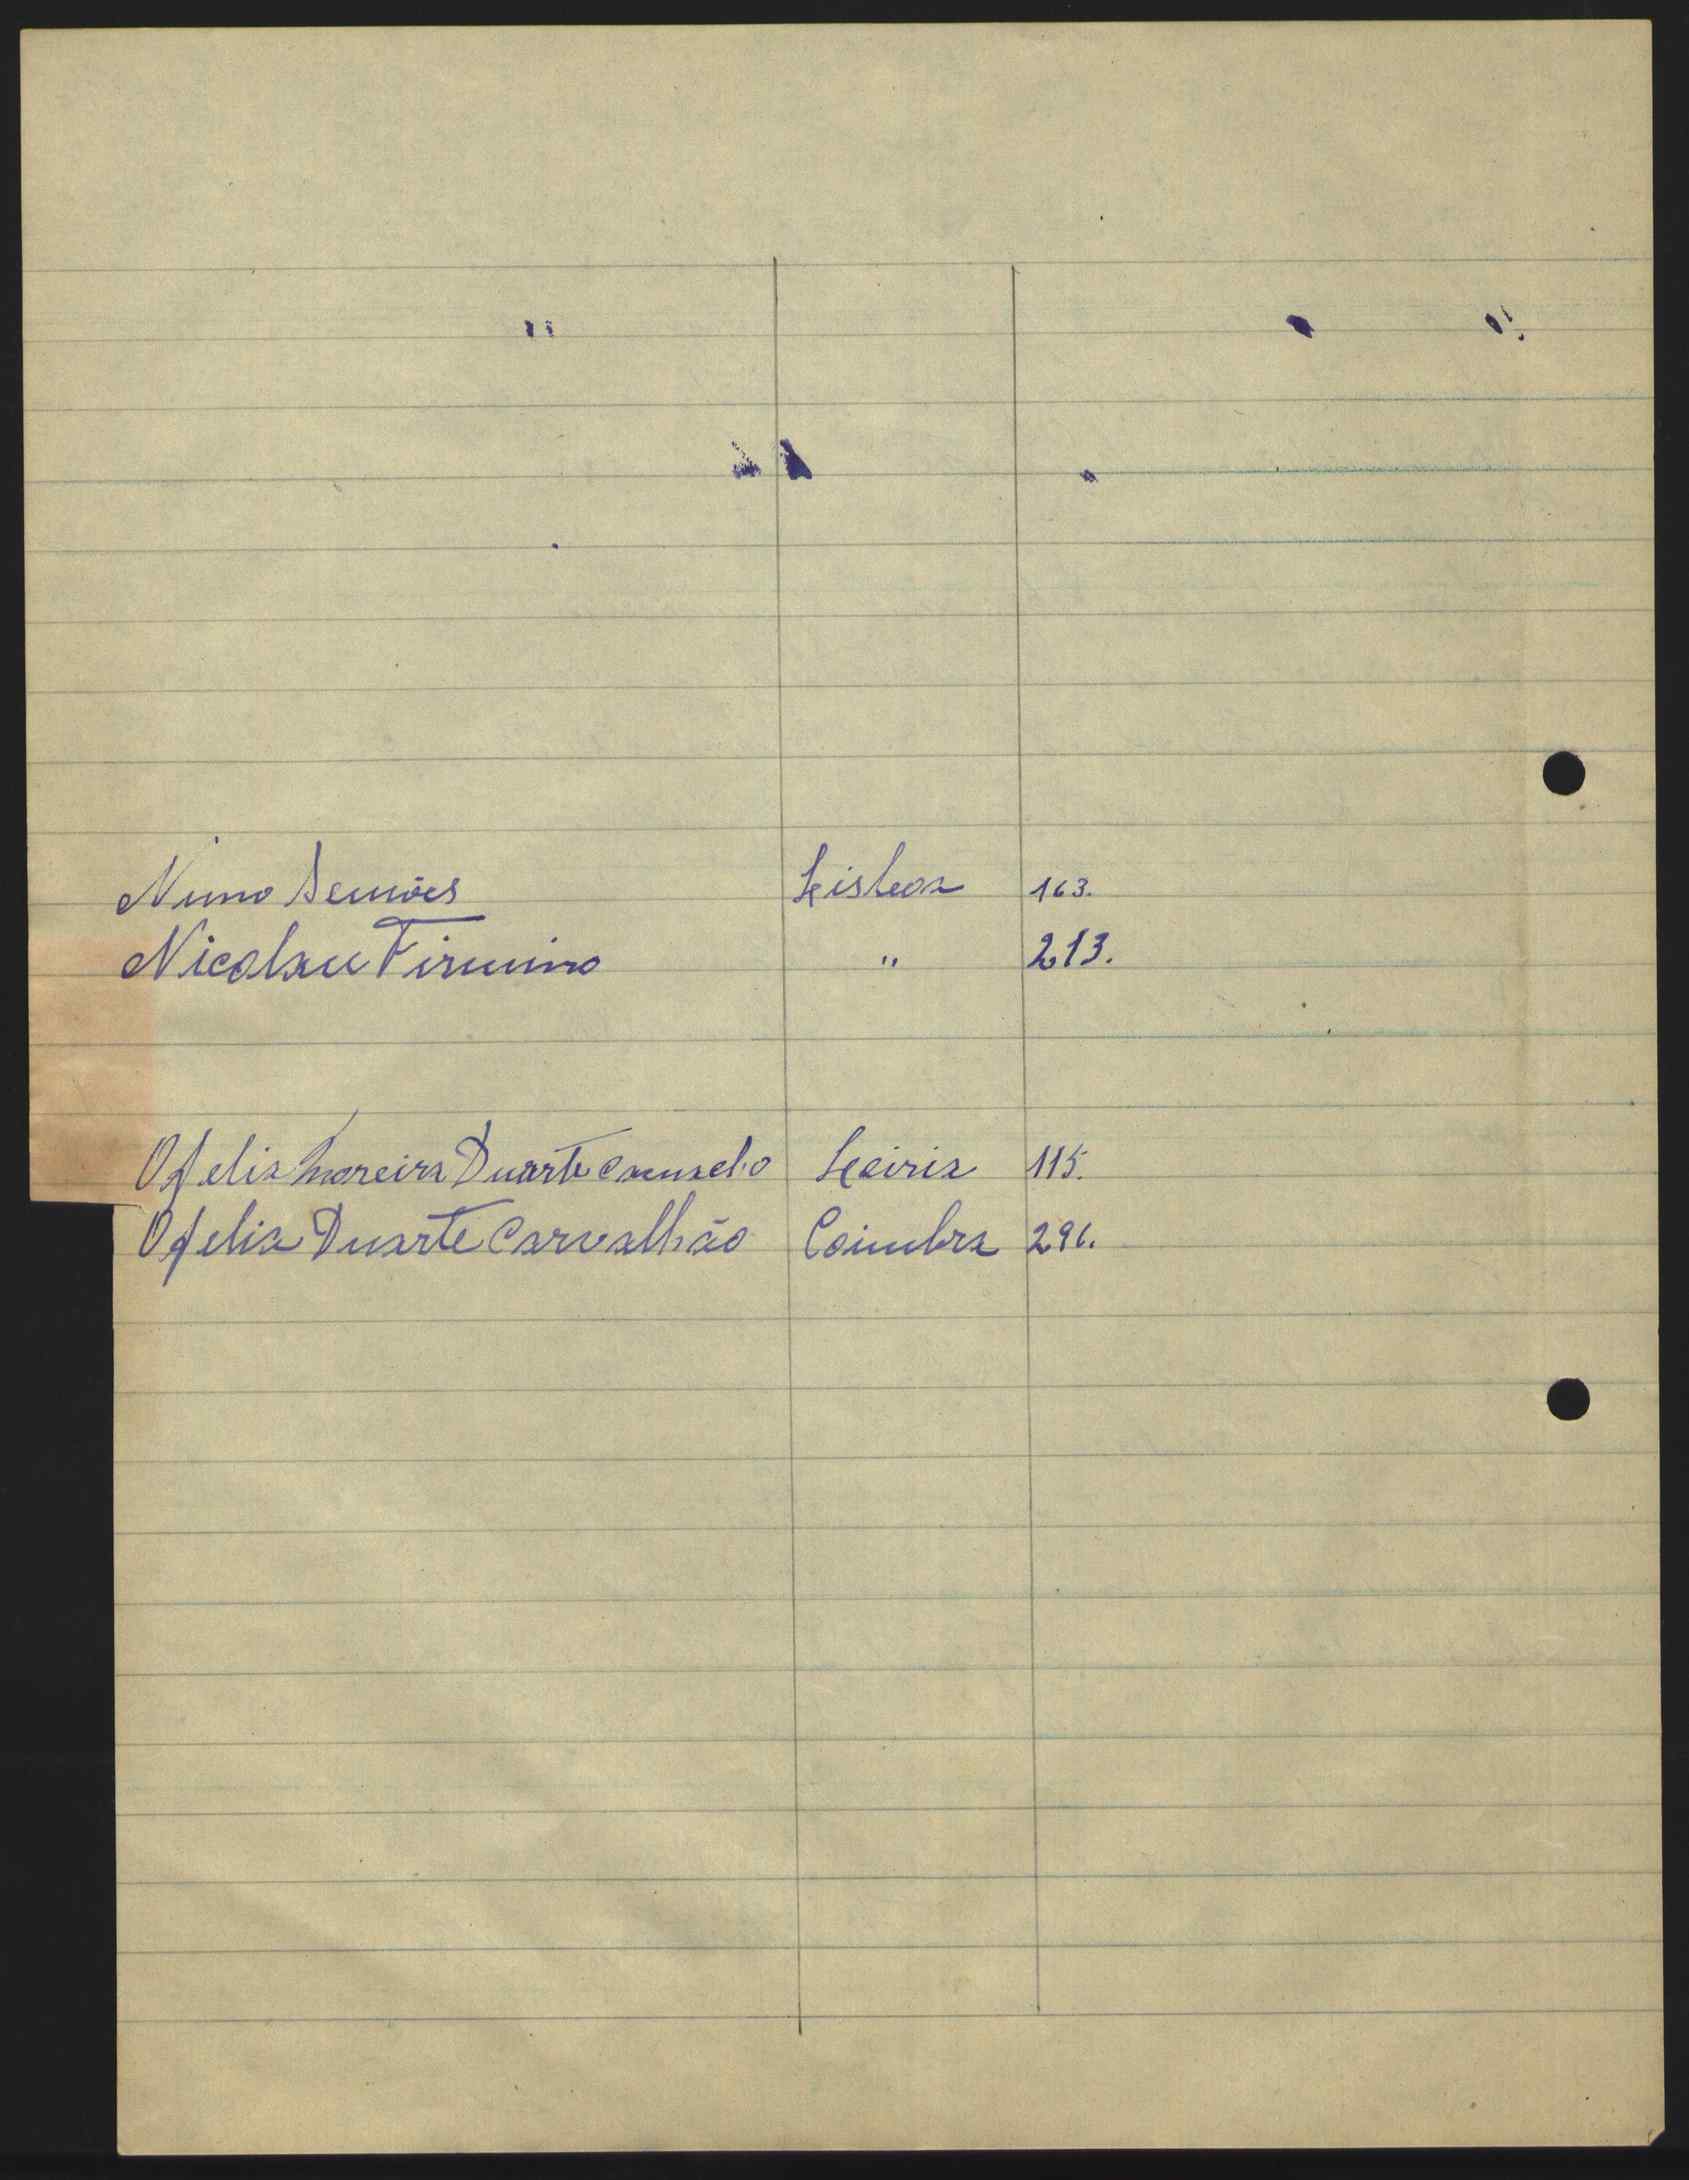 Nuno Simões Lisboa 163.
Nicolau Firmino " 213.
Ofelia Moreira Duarte Leiria 115.
Ofelia Duarte Carvalhão Coimbra 296.